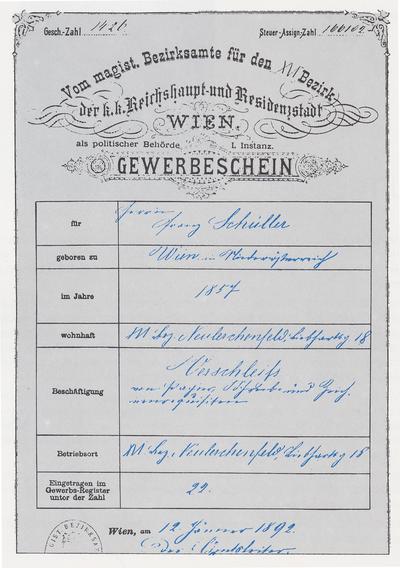 Gesch.-Zahl 1426
Steuer-Assign.-Zahl
Vom magist. Bezirksamte für den XVI Bezirk
der k.k. Reichshaupt- und Residenzstadt
WIEN.
als politischer Behörde I. Instanz.
GEWERBESCHEIN
für Herrn Franz Schüller
geboren zu Wien in Niederösterreich
im Jahre 1857
wohnhaft XVI Bez. Neulerchenfeld, 18
Beschäftigung Verschleiß
von Papier, Schreib- und Zeich-
nenrequisiten
Betriebsort XVI Bez. Neulerchenfeld, 18
Eingetragen im
Gewerbs-Register
unter der Zahl 22.
Wien, am 12 Jänner 1892.
Der Amtsleiter